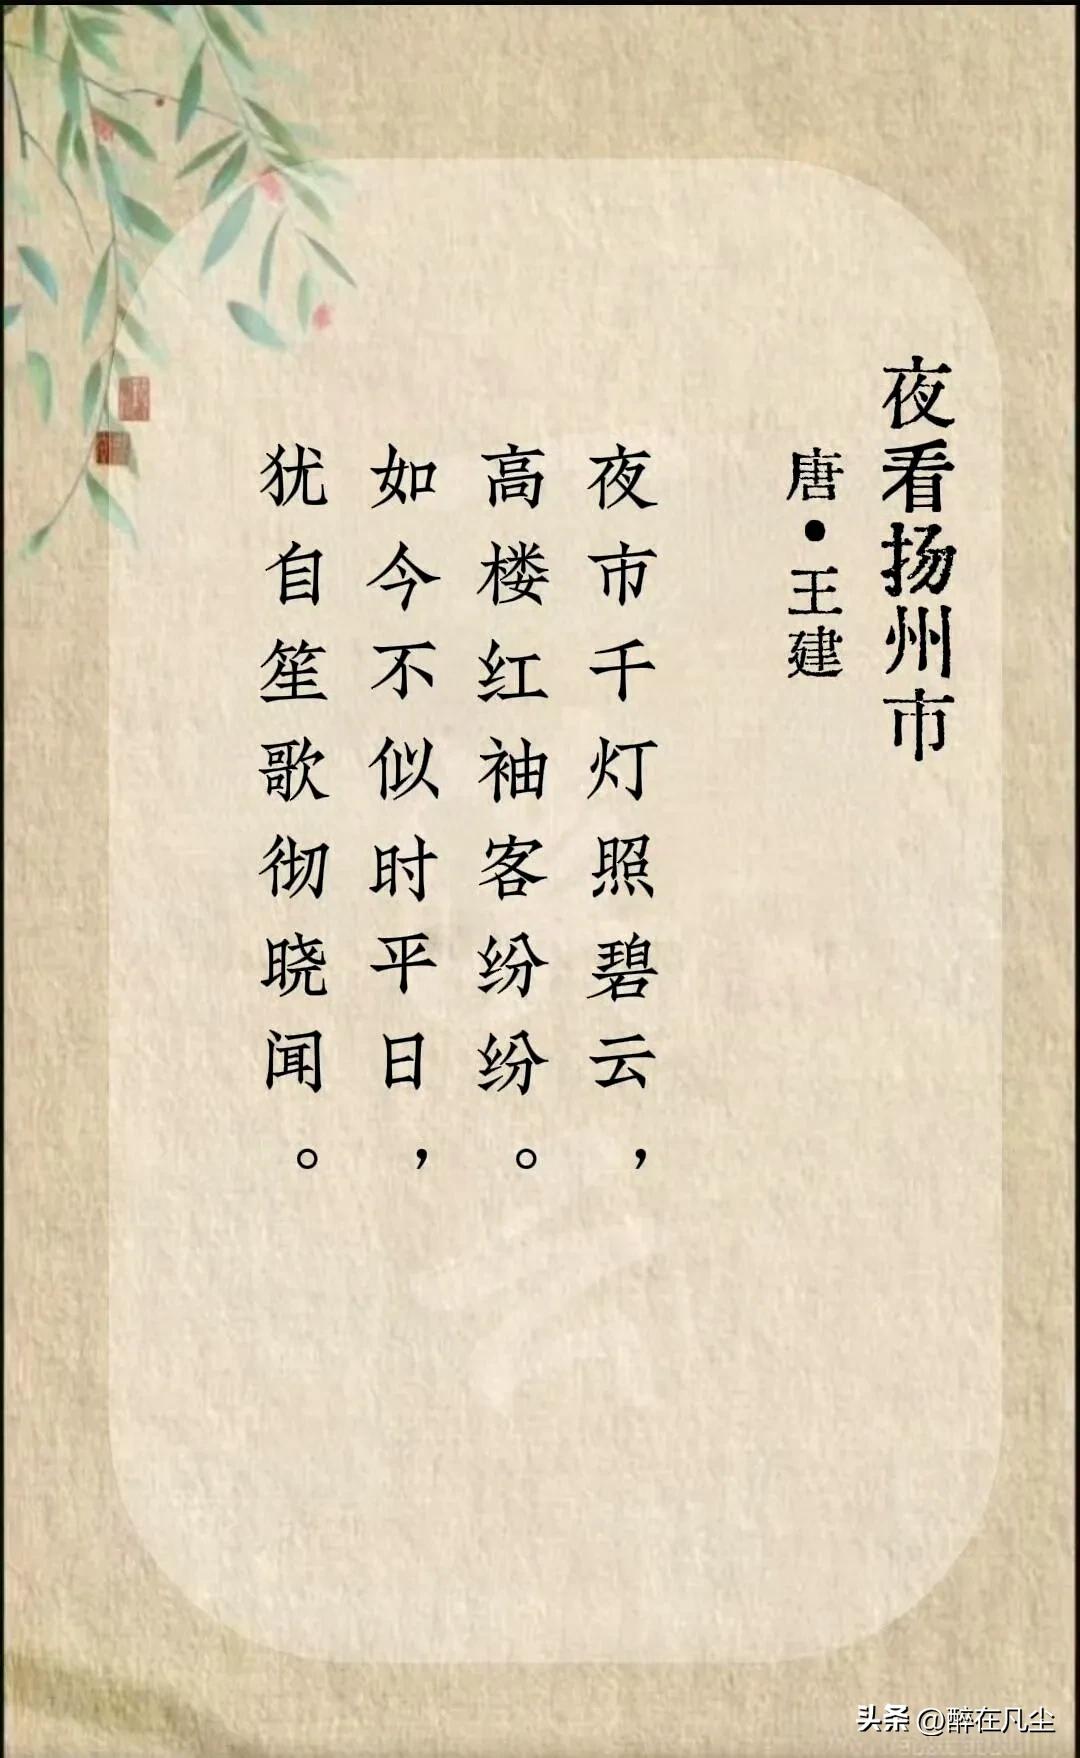 夜看扬州市
唐•王建
夜市千灯照碧云，
高楼红袖客纷纷。
如今不似时平日，
犹自笙歌彻晓闻。
头条 @醉在凡尘